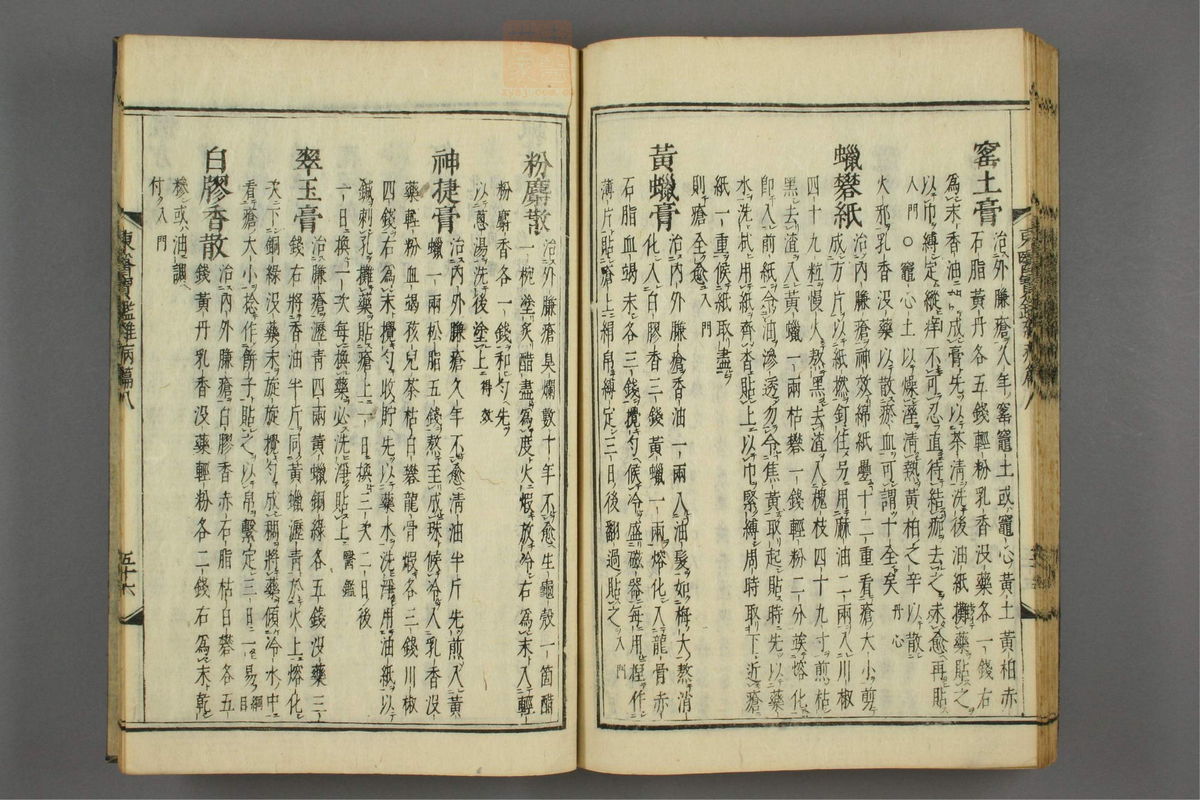 窰土膏
治外臁瘡久年窰竈土或竈心黃土黃柏赤
石脂黃丹各五錢輕粉乳香沒藥各一錢右
為末香油調成膏先以茶清洗後油紙攤藥貼之
以巾縛定縱痒不可忍直待結痂去之未愈再貼
入門○竈心土以燥濕淸熱黃柏之辛以散
火邪乳香沒藥以散瘀血可謂十全矣丹心
蠟礬紙
治內外臁瘡神效綿紙疊十二重看瘡大小剪
成方片以紙撚釘住另用麻油二兩入川椒
四十九粒慢火熬黑去渣入槐枝四十九寸煎枯
黑去渣入黃蠟一兩枯礬一錢輕粉二分竢熔化
卽入前紙令油滲透勿令焦黃取起貼時先以藥
水洗拭用紙齊沓貼上以巾緊縛周時取下近瘡
紙一重候紙取盡
則瘡全愈入門
黃蠟膏
治內外臁瘡香油一兩入油髮如梅大熬消
化入白膠香三錢黃蠟一兩熔化入龍骨赤
石脂血竭末各三錢攪勻候冷盛磁器每用揑作
薄片貼瘡上絹帛縛定三日後翻過貼之入門
粉麝散
治外臁瘡臭爛數十年不愈生龜殼一箇醋
一椀塗炙醋盡為度火煆放冷右為末入輕
粉麝香各一錢和勻先
以蔥湯洗後塗上得效
神捷膏
治內外臁瘡久年不愈淸油半斤先煎入黃
蠟一兩松脂五錢熬至成珠候冷入乳香沒
藥輕粉血竭孩兒茶枯白礬龍骨煆各三錢川椒
四錢右為末攪勻收貯先以藥水洗淨用油紙以
鍼刺孔攤藥貼瘡上一日換三次二日後
一日換一次每換藥必洗淨貼上醫鑑
翠玉膏
治臁瘡瀝靑四兩黃蠟銅綠各五錢沒藥三
錢右將香油半斤同黃蠟瀝靑於火上熔化
次下銅綠沒藥末旋旋攪勻成稠將藥傾冷水中
看瘡大小捻作餠子貼之以帛繫定三日一易綱目
白膠香散
治內外臁瘡白膠香赤石脂枯白礬各五
錢黃丹乳香沒藥輕粉各二錢右為末乾
糝或油調
付入門
東醫寶鑑雜病篇八
五十六